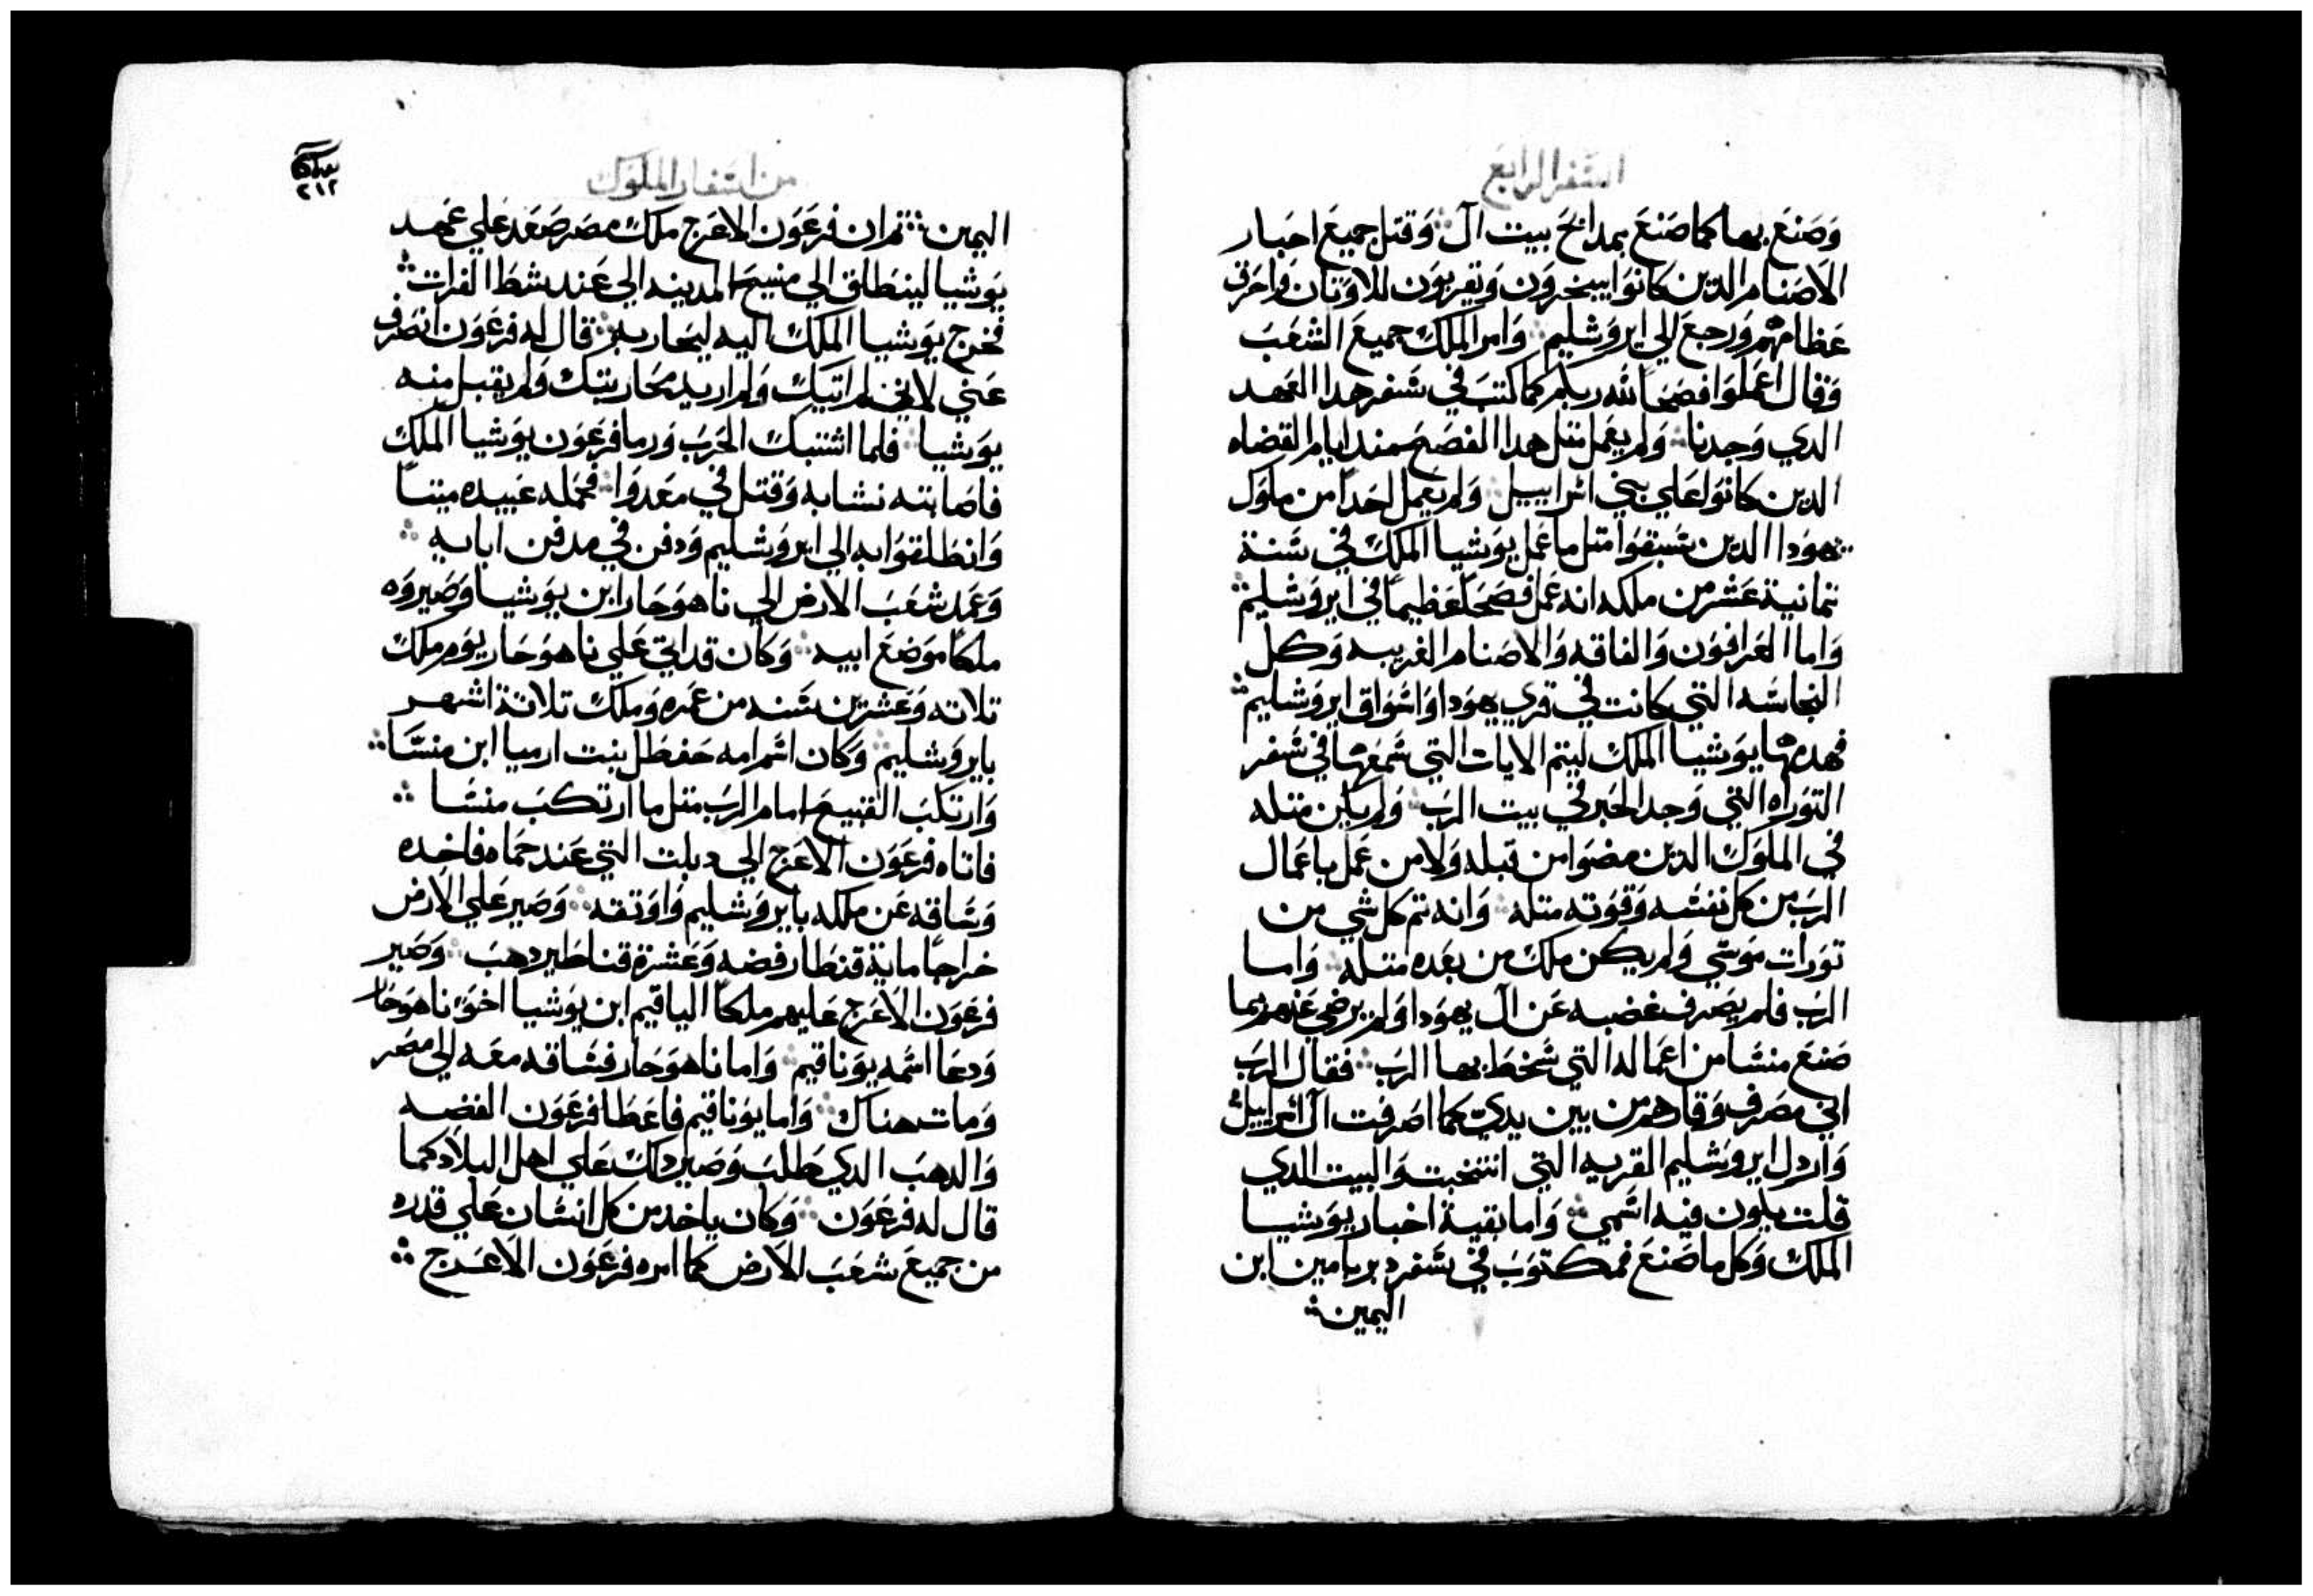 السفر الرابع
وصنع بها كما صنع بمدابح بيت ال ∴ وقتل جميع احبار
الاصنام الدين كانوا يبخرون ويقربون للاوتان واحرق
عظامهم ورجع الي ايروشليم ∴ وامر الملك جميع الشعب
وقال اعملوا فصحا لله ربكم كما كتب في سفر هدا العهد
الدي وجدنا ∴ ولم يعمل متل هدا الفصح مند ايام القضاه
الدين كانوا علي بني اسراييل ∴ ولم يعمل احدا من ملوك
يهودا الدين سبقوا متل ما عمل يوشيا الملك في سنة
تمانية عشر من ملكه انه عمل فصحا عظيما في ايروشليم ∴
واما العرافون والفاقه والاصنام الغريبه وكل
النجاسه التي كانت في قري يهودا واسواق ايروشليم ∴
فهدمها يوشيا الملك ليتم الايات التي سمعها في سفر
التوراه التي وجد الحبر في بيت الرب ∴ ولم يكن متله
في الملوك الدين مضوا من قبله ولا من عمل باعمال
الرب من كل نفسه وقوته متله ∴ وانه تم كل شي من
تورات موسي ولم يكن ملك من بعده متله ∴ واما
الرب فلم يصرف غضبه عن ال يهودا ولم يرضي عنهم بما
صنع منسا من اعماله التي سخط بها الرب ∴ فقال الرب
اني مصرف وقادهم من بين يدي كما اصرفت ال اسراييل ∴
واردل ايروشليم القريه التي انتخبت والبيت الدي
قلت يكون فيه اسمي ∴ واما بقية اخبار يوشيا
الملك وكل ما صنع فمكتوب في سفر دبريامين ابن
اليمين ∴
من اسفار الملوك
٢١٢
اليمين ∴ تم ان فرعون الاعرج ملك مصر صعد علي عهد
يوشيا لينطلق الي منبيح المدينه الي عند شط الفرات ∴
فخرج يوشيا الملك اليه ليحاربه ∴ قال له فرعون انصرف
عني لاني لم اتيك ولم اريد محاربتك ولم يقبل منه
يوشيا ∴ فلما اشتبك الحرب ورما فرعون يوشيا الملك
فاصابته نشابه وقتل في معدوا ∴ فحمله عبيده ميتا
وانطلقوا به الي ايروشليم ودفن في مدفن ابايه ∴
وعمد شعب الارض الي ناهوحار ابن يوشيا وصيروه
ملكا موضع ابيه ∴ وكان قد اتي علي ناهوحار يوم ملك
تلاته وعشرين سنه من عمره وملك تلاتة اشهر
بايروشليم ∴ وكان اسم امه حفطل بنت ارميا ابن منسا ∴
وارتكب القبيح امام الرب متل ما ارتكب منسا ∴
فاتاه فرعون الاعرج الي دبلت التي عند حماه فاخده
وساقه عن ملكه بايروشليم واوتقه ∴ وصير علي الارض
خراجا ماية قنطار فضه وعشرة قناطير دهب ∴ وصير
فرعون الاعرج عليهم ملكا الياقيم ابن يوشيا اخو ناهوحار
ودعا اسمه يوناقيم ∴ واما ناهوحار فساقه معه الي مصر
ومات هناك ∴ واما يوناقيم فاعطا فرعون الفضه
والدهب الدي طلب وصير دلك علي اهل البلاد كما
قال له فرعون ∴ وكان ياخد من كل انسان علي قدره
من جميع شعب الارض كما امره فرعون الاعرج ∴